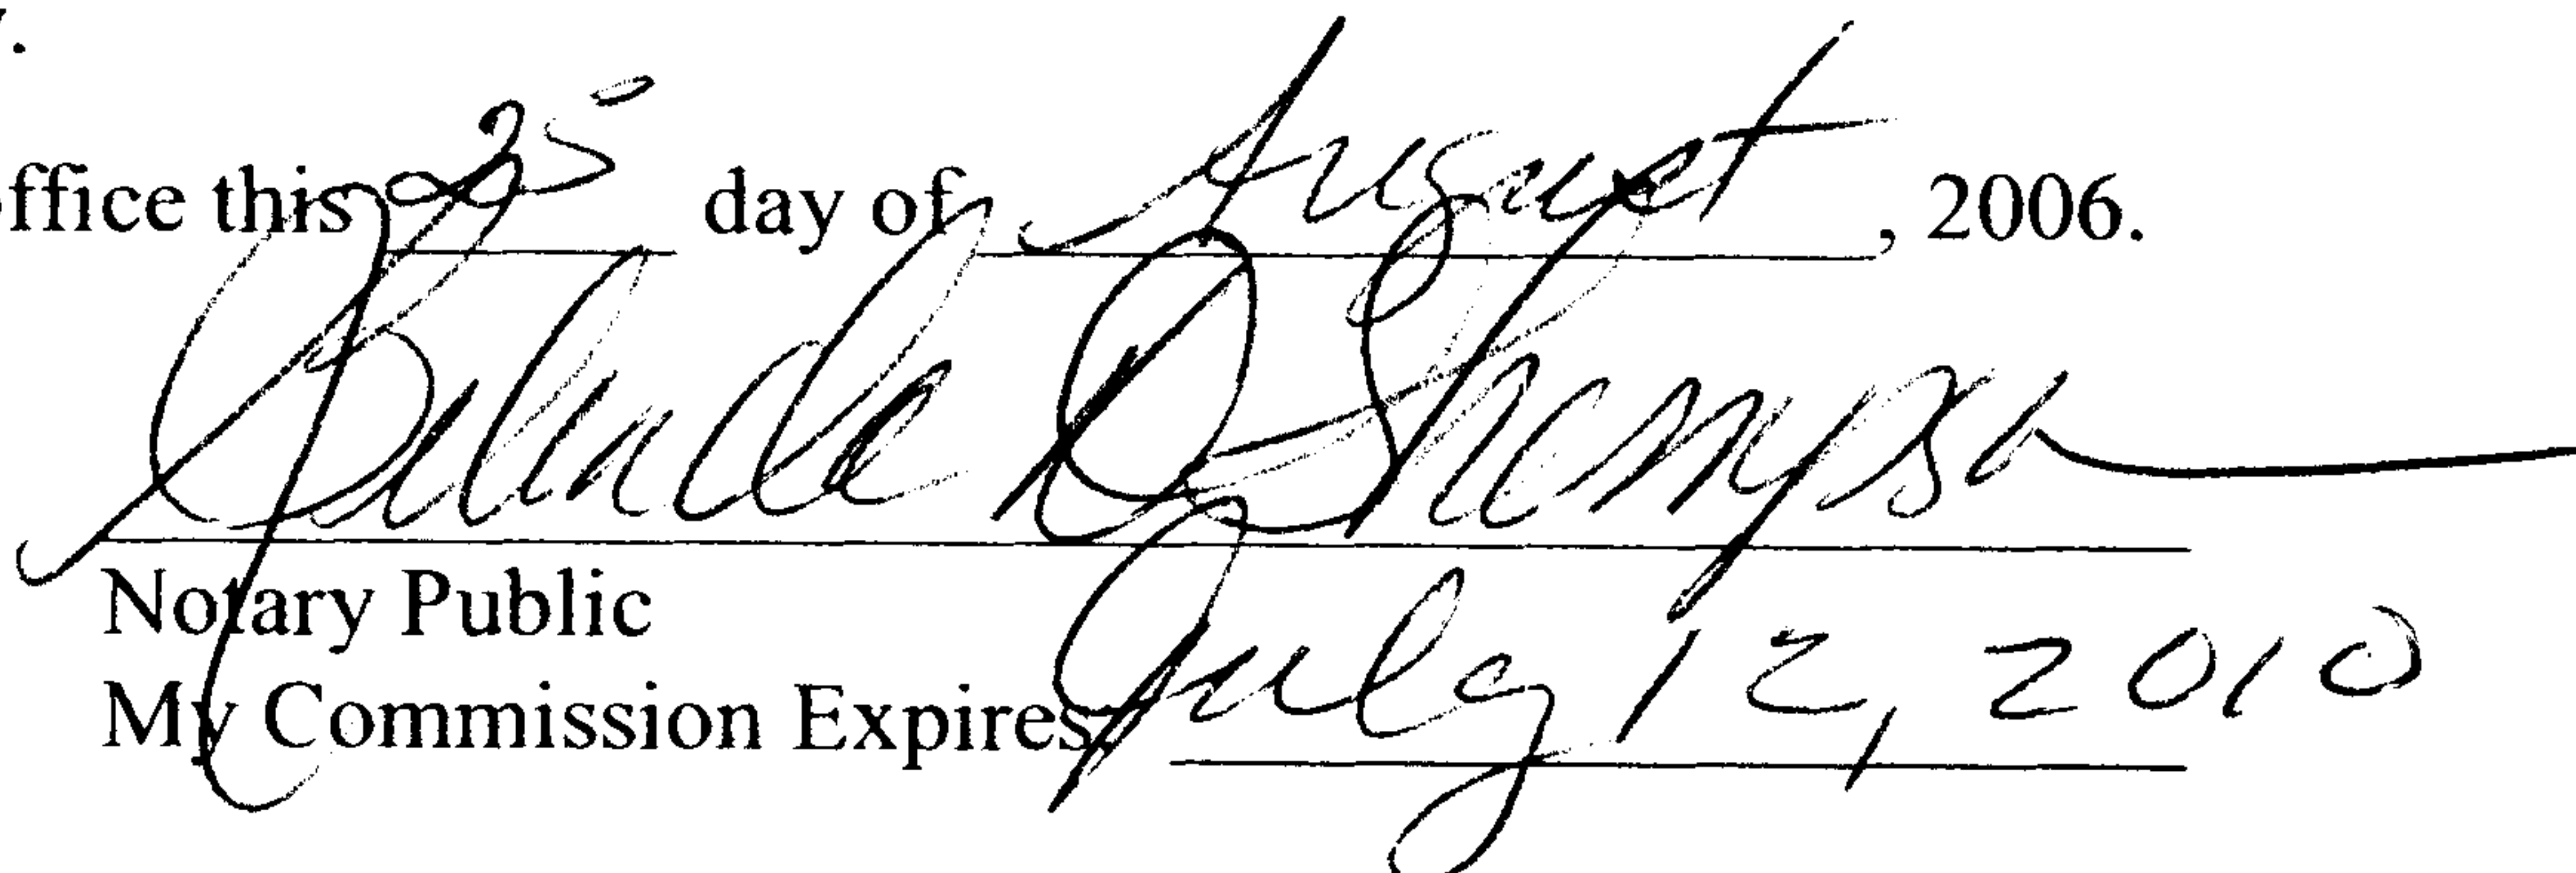 ffice this 25 day of August, 2006.
Belinda D Thompson
Notary Public
My Commission Expires: July 12, 2010